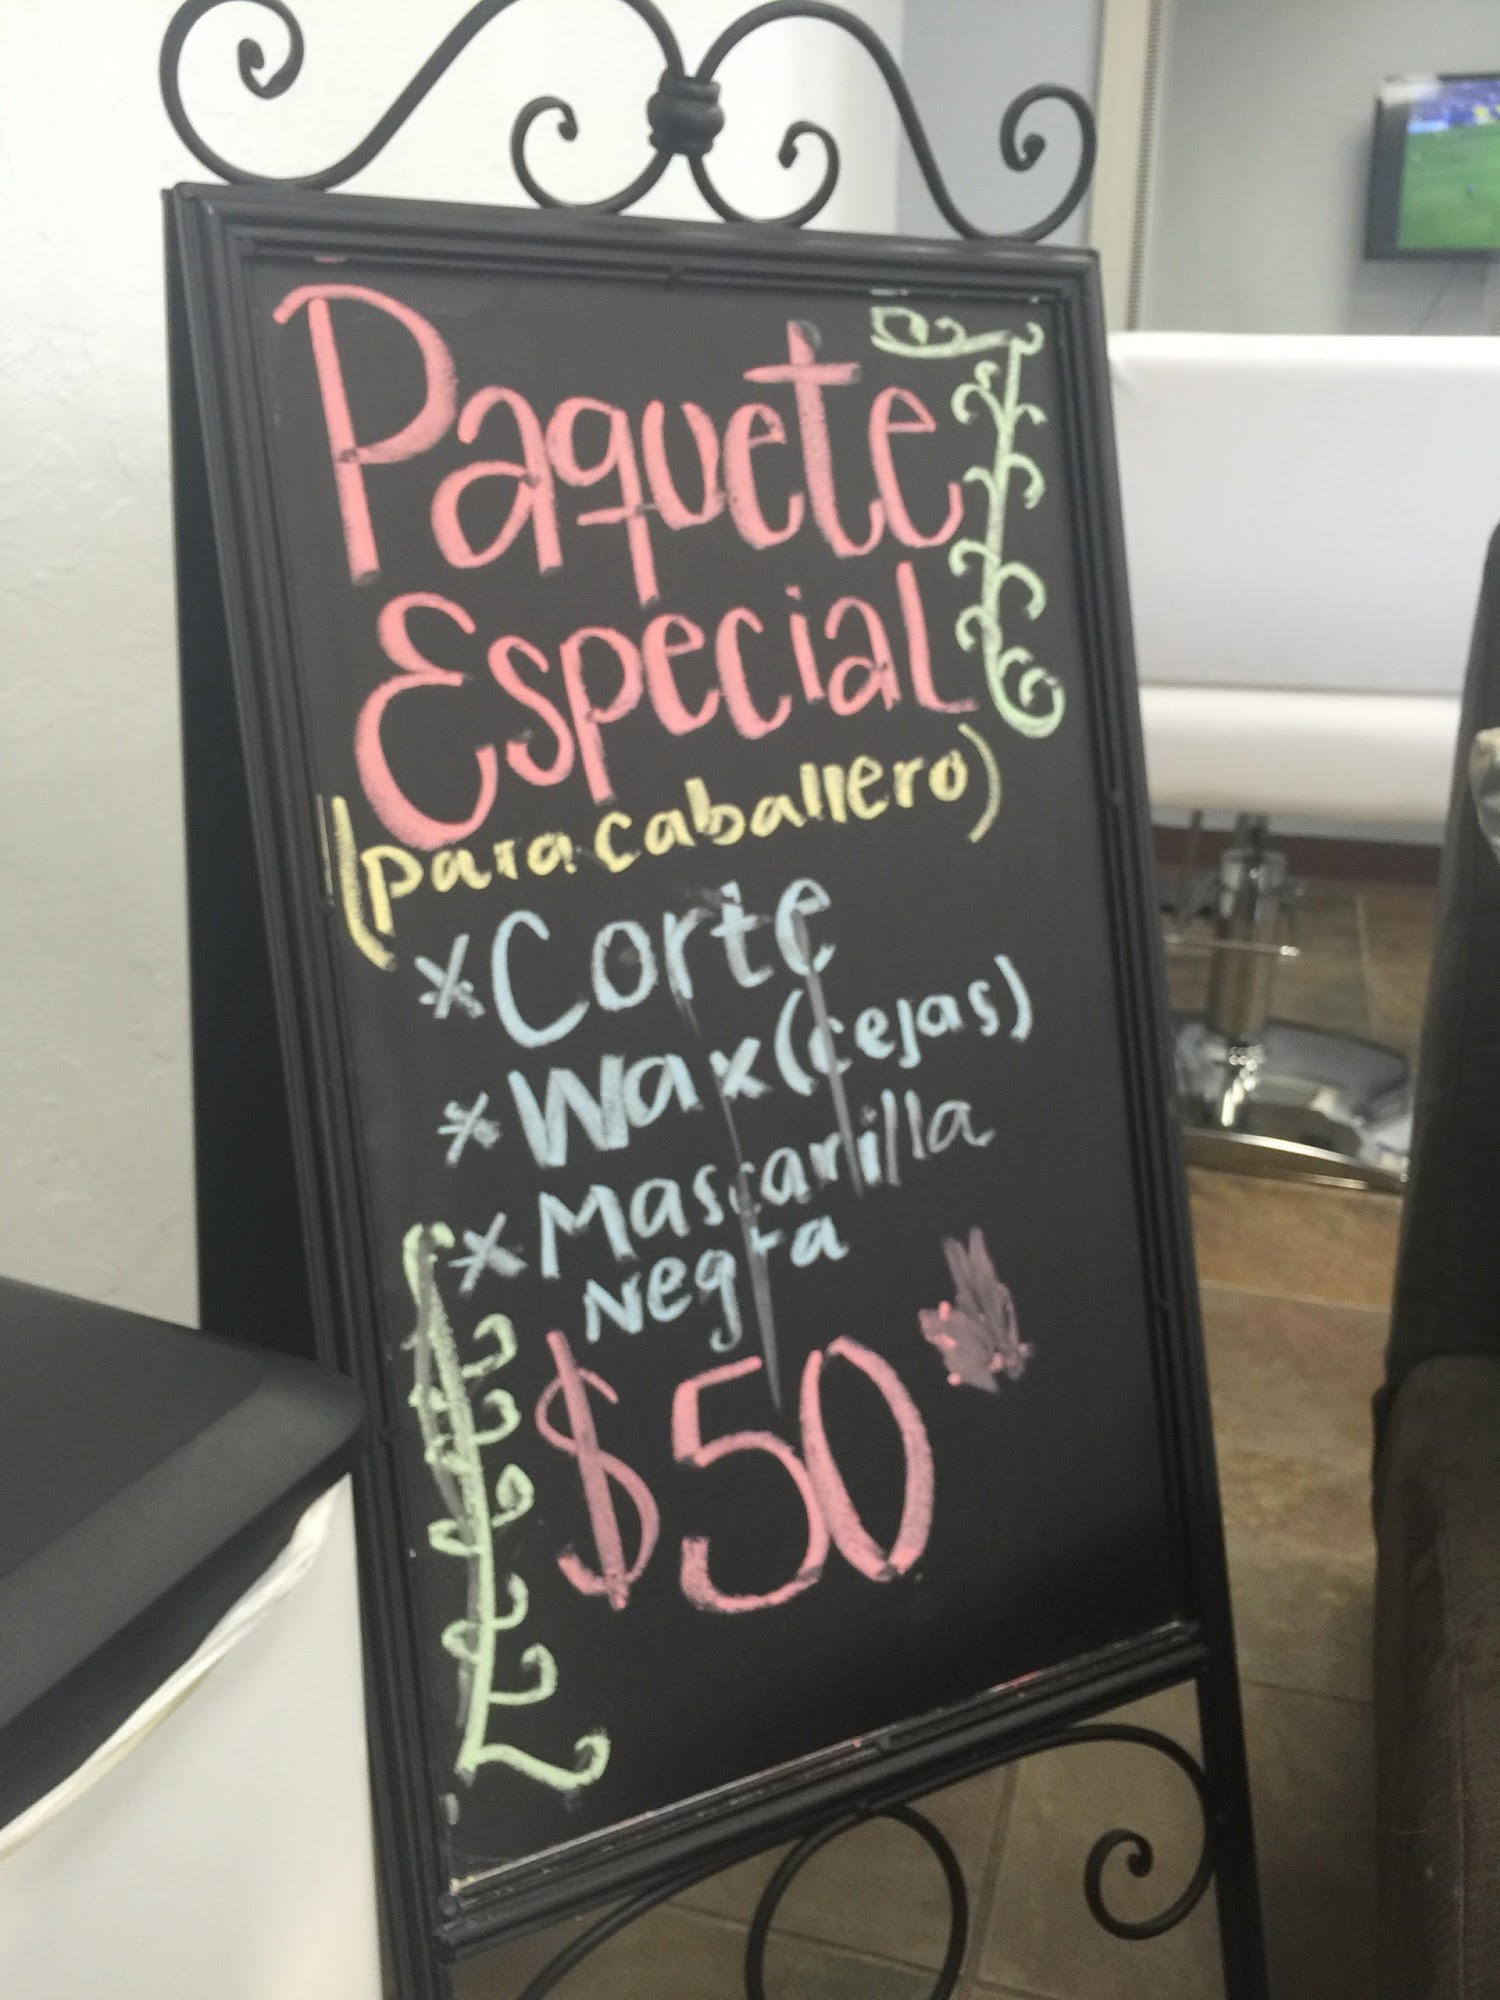 Paquete
Especial
(para caballero)
* Corte
* Wax (cejas)
* Mascarilla
Negra
$50